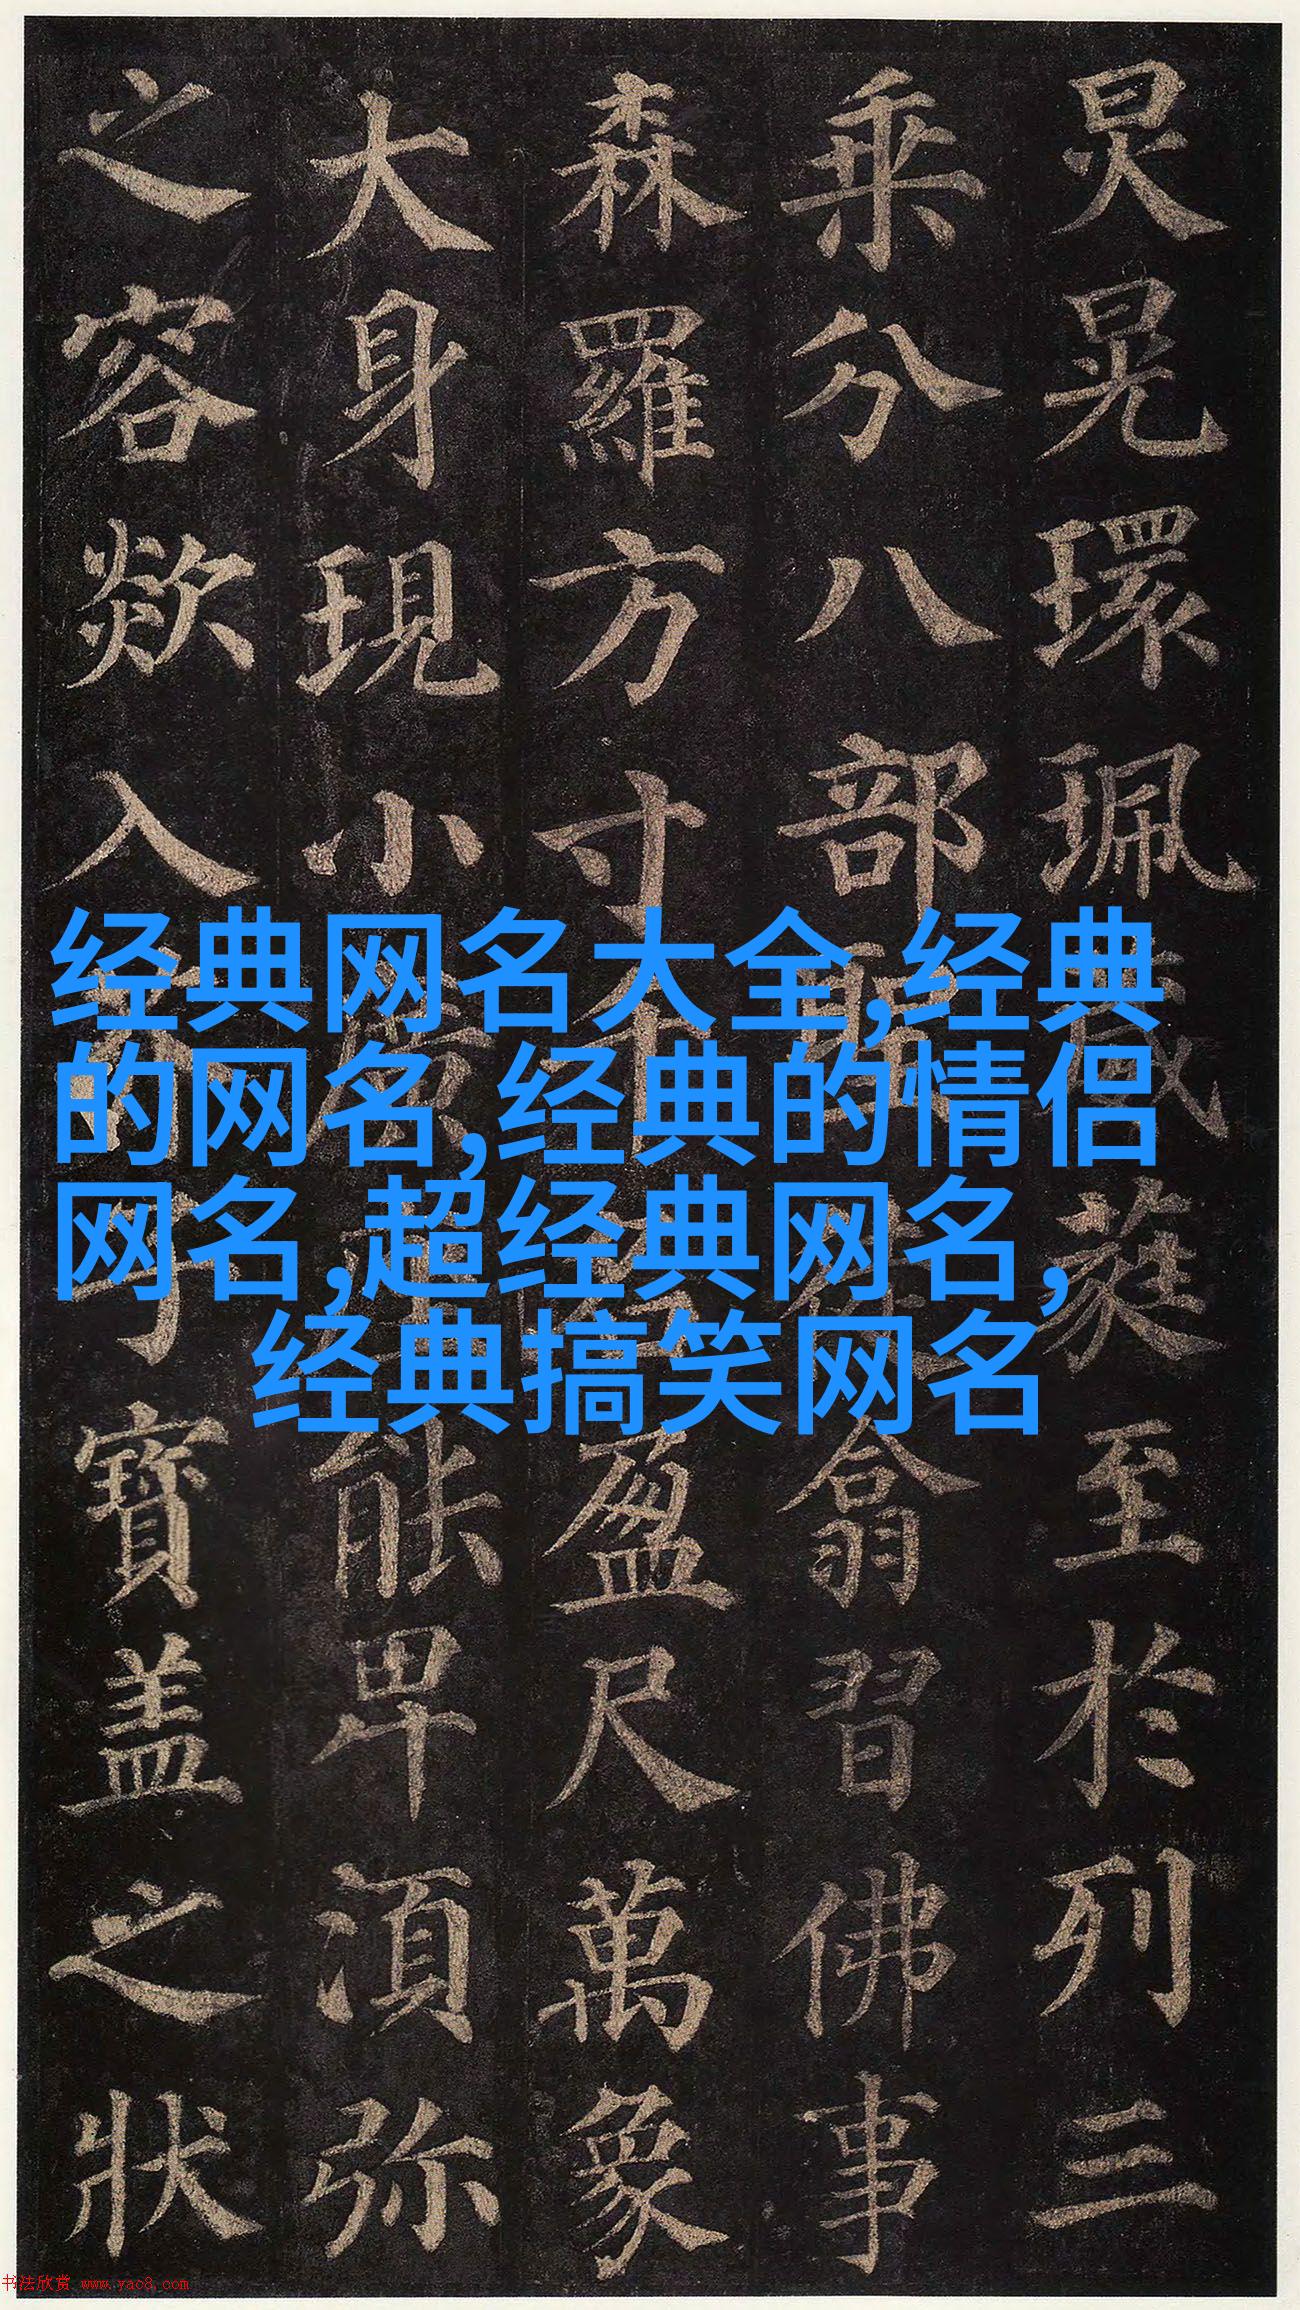 炅晃環珮葳蕤至於列三
乘分八部聖徒翕習佛事
森羅方寸千名盈尺萬象
大身現小廣座能卑湏弥
之容欻入芥子寶盖之狀
经典网名大全,经典
的网名,经典的情侣
网名,超经典网名,
经典搞笑网名
书法欣赏 www.yac8.com